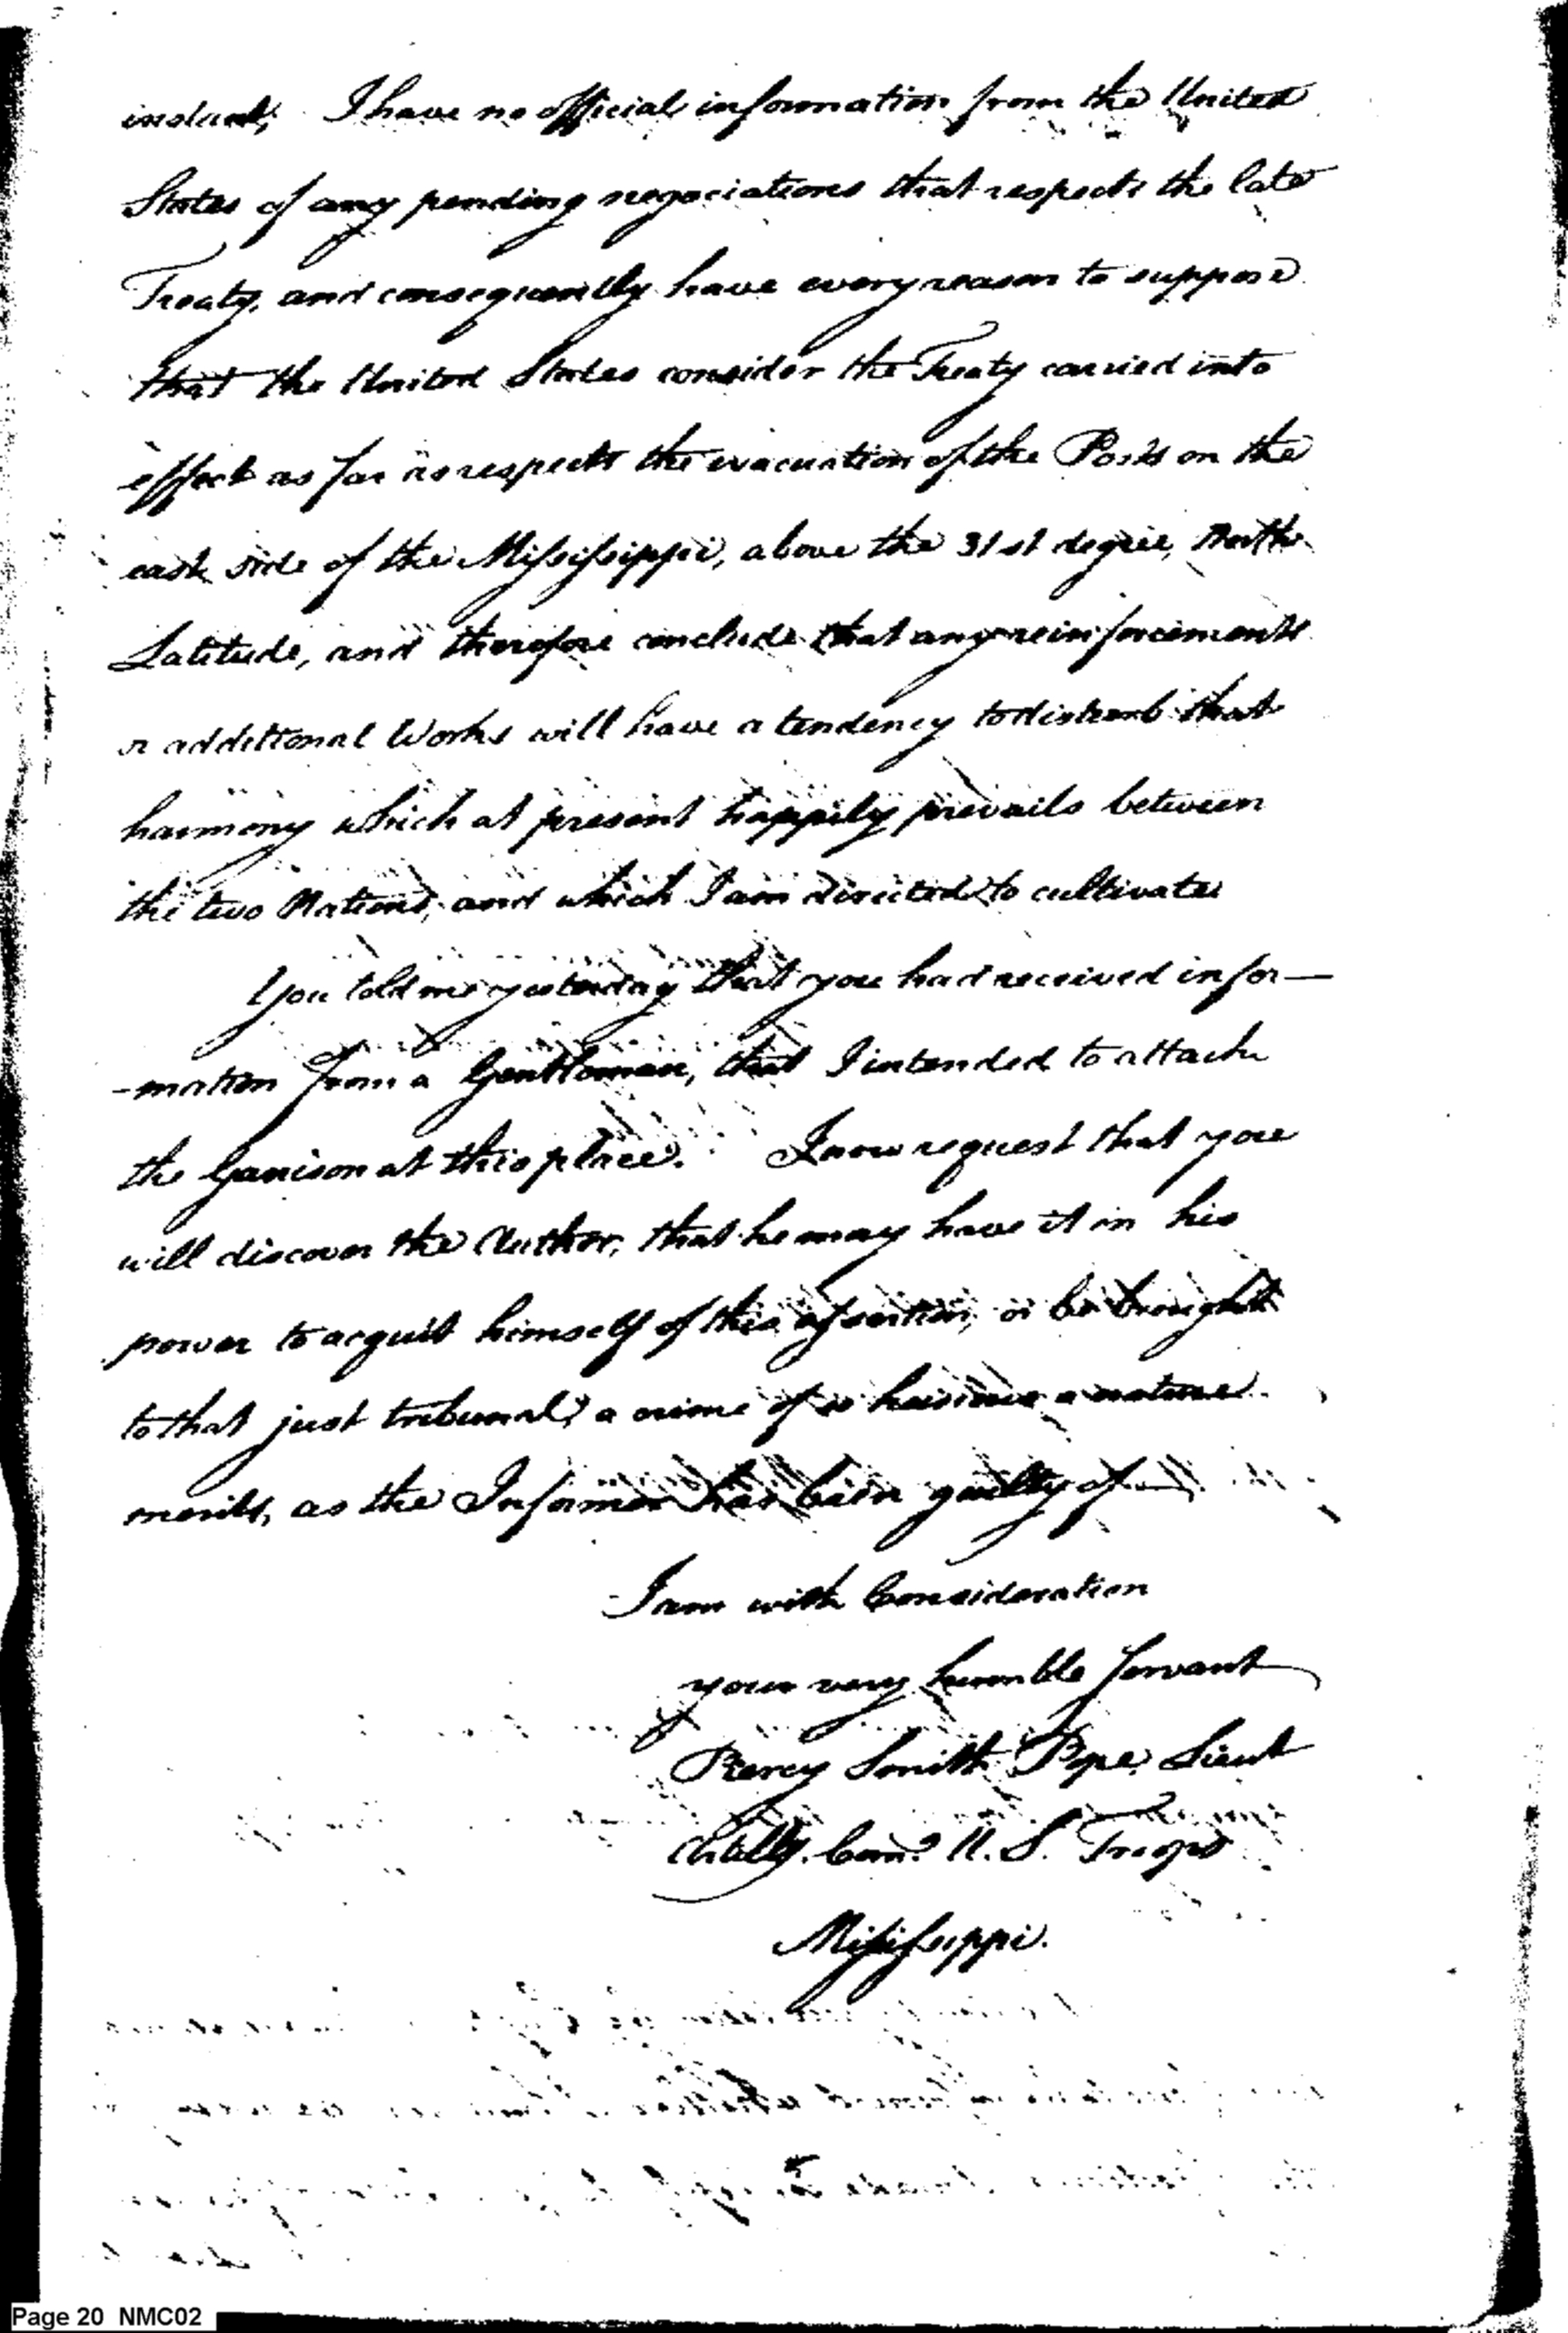 instant, I have no official information from the United
States of any pending negociations that respects the late
Treaty, and consequently have every reason to suppose
that the United States consider the Treaty carried into
effect as far as respects the evacuation of the Posts on the
east side of the Mississippi, above the 31st degree, North
Latitude, and therefore conclude that any reinforcements
or additional Works will have a tendency to disturb that
harmony which at present happily prevails between
the two Nations, and which I am directed to cultivate
You told me yesterday that you had received infor—
-mation from a Gentleman, that I intended to attack
the Garrison at this place. I now request that you
will discover the Author, that he may have it in his
power to acquit himself of this assertion, or be brought
to that just tribunal, a crime of so heinous a nature
merits, as the Informer has been guilty of
I am with Consideration
your very humble Servant
Piercy Smith Pope, Lieut
Artilly. Comd. U. S. Troops
Mississippi.
Page 20 NMC02